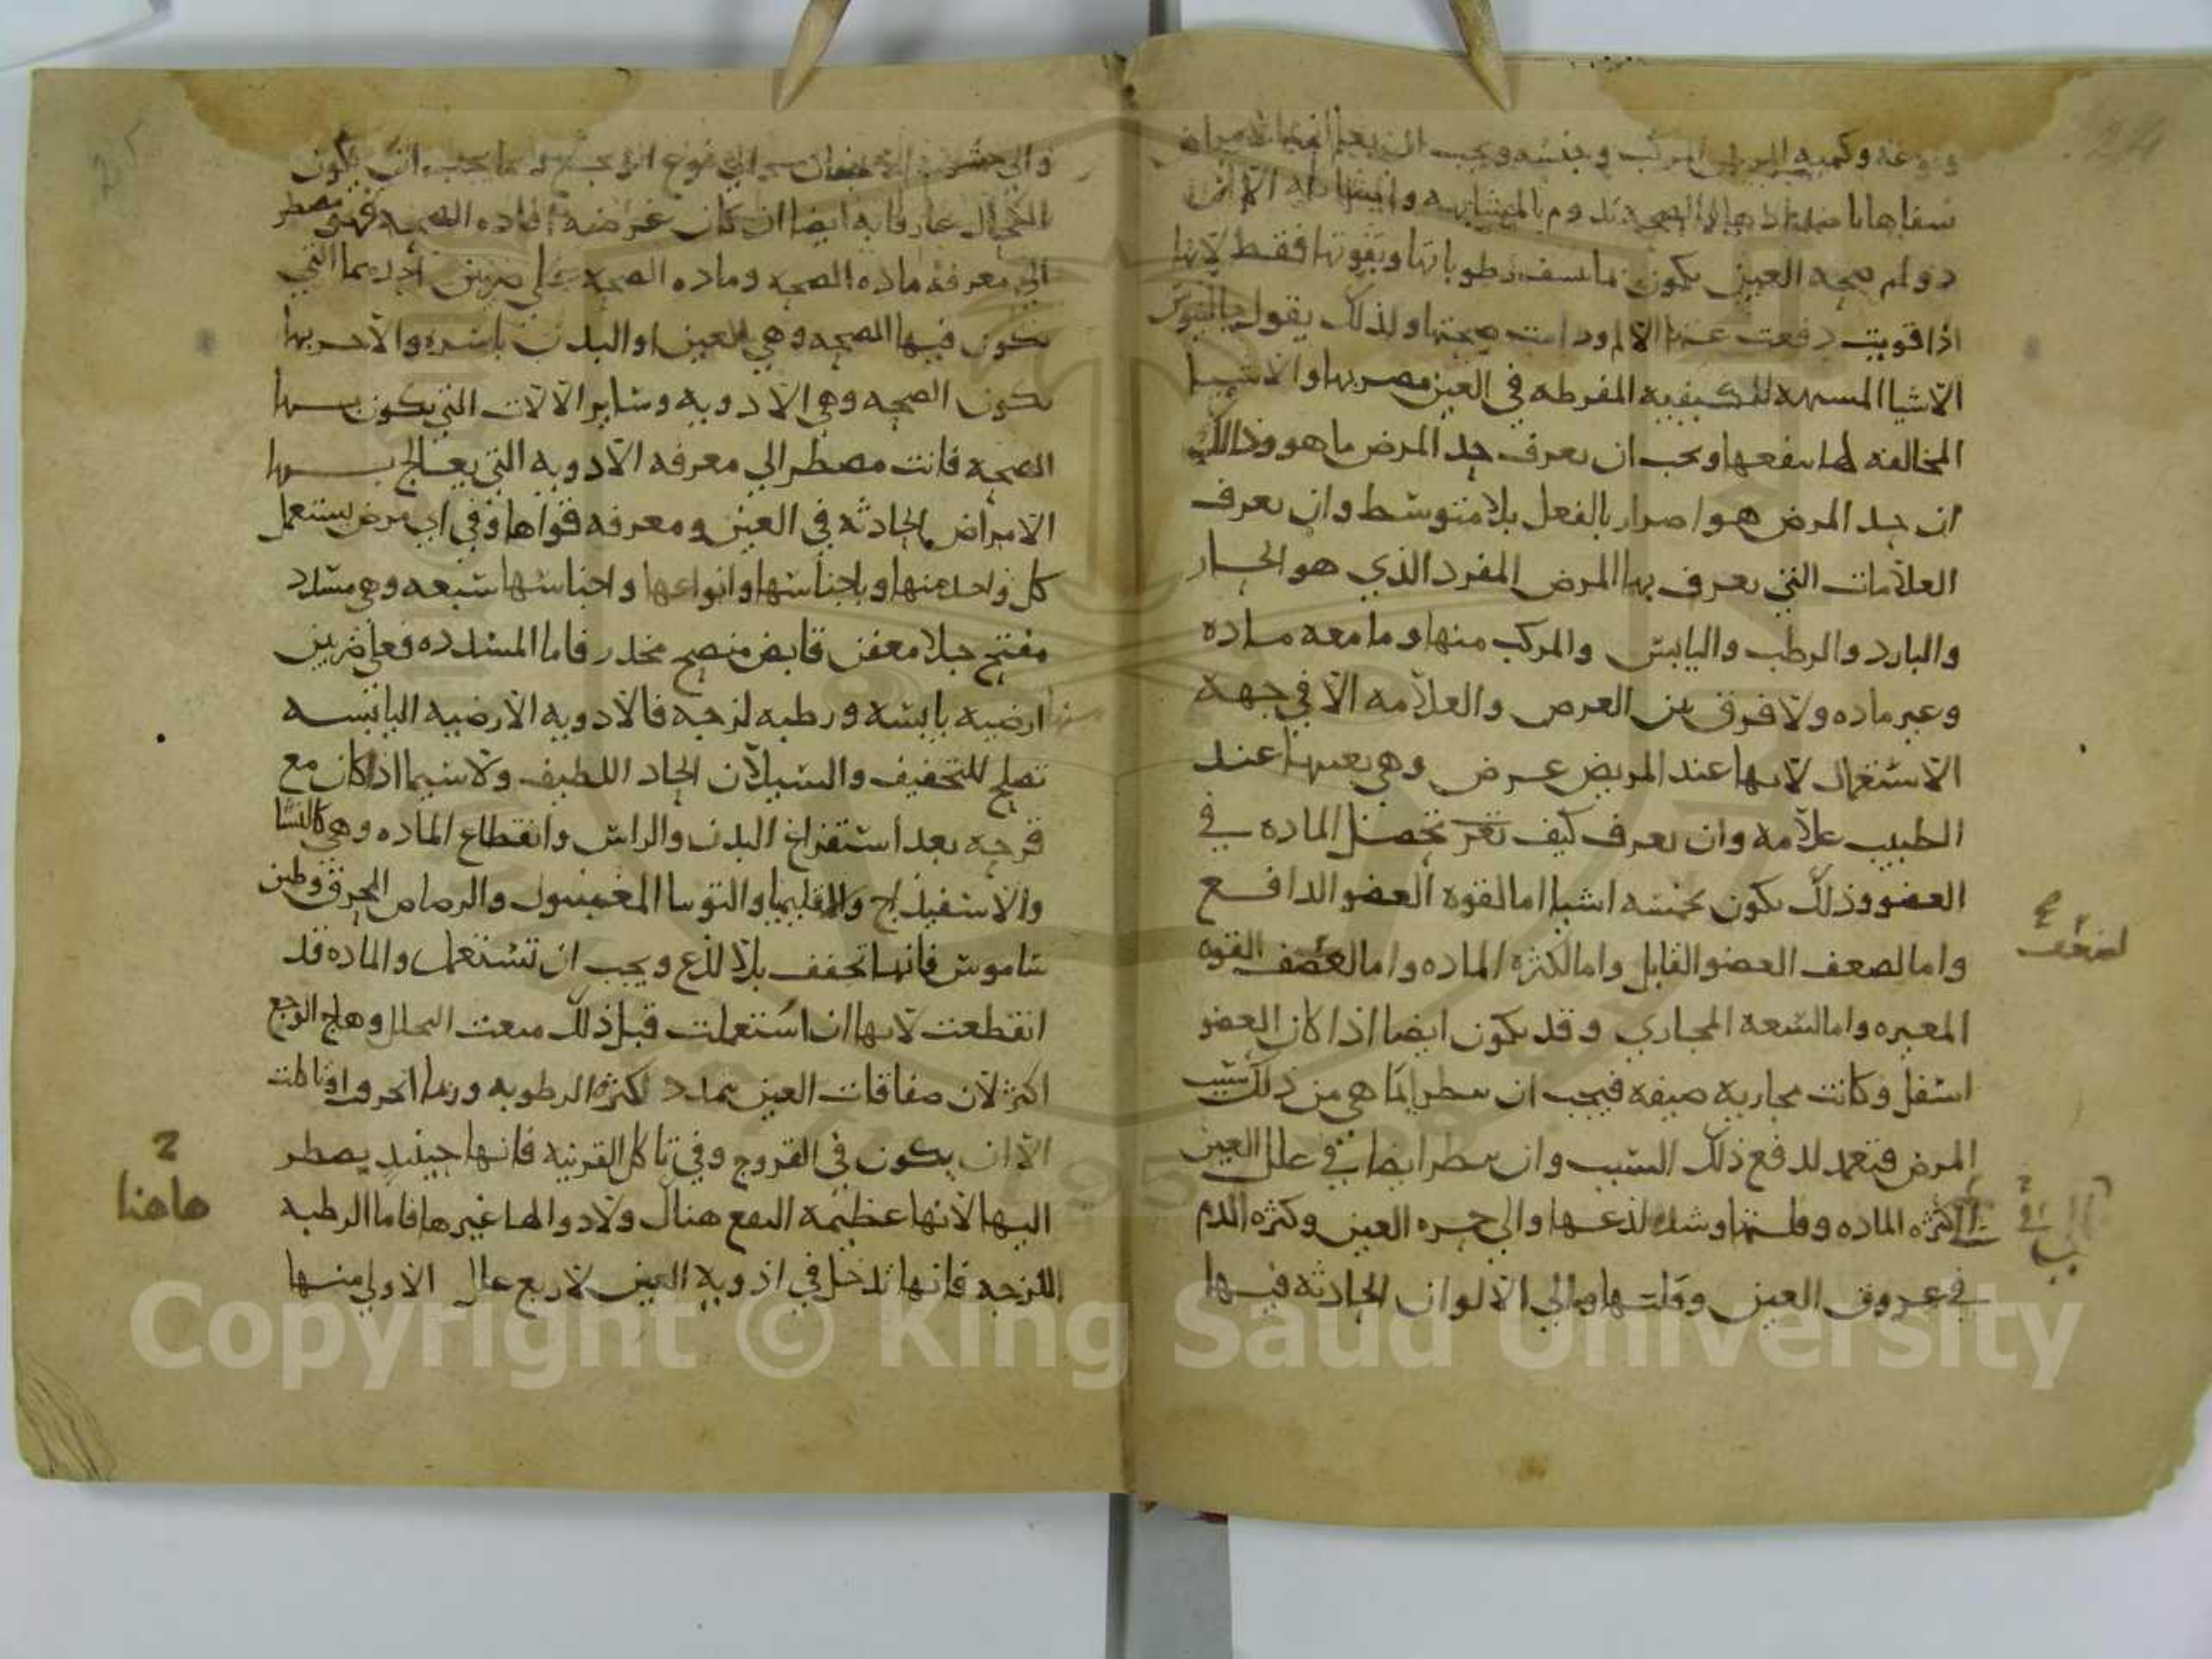 ونوعه وكميه المرض المركب وجنسه ويجب ان يعلم
دوام صحه العين يكون بقوتها فقط لانها
اذا قويت دفعت عنها الالم ودامت صحتها ولذلك يقول جالينوس
الاشيا المفرطه في العين مضر بها والاشيا
المخالفه لها ينفعها ويجب ان يعرف حد المرض ما هو وذلك
ان حد المرض هو اضرار بالفعل بلا متوسط وان يعرف
العلامات التي يعرف بها المرض المفرد الذي هو الحار
والبارد والرطب واليابس والمركب منها وما معه ماده
وغير ماده ولا فرق بين العرض والعلامه الا في جهة
الاستعمال لانها عند المريض عرض وهي بعينها عند
الطبيب علامه وان يعرف كيف تحصل الماده في
العضو وذلك يكون بخمسه اشيا اما لقوه العضو الدافع
واما لضعف العضو القابل واما لكثره الماده واما لضعف القوه
المغيره واما لسعه المجاري وقد يكون ايضا اذا كان العضو
اسفل وكانت مجاريه ضيقه فيجب ان ينظر ايما هي من ذلك سبب
المرض فتعمد لدفع ذلك السبب وان ينظر ايضا في علل العين
الى كثره الماده وقلتها وشده لذعها والى حمره العين وكثره الدم
في عروق العين وقلتها والى الالوان الحادثه فيها
لضعف
الكحال عارفا به ايضا ان كان غرضه افاده الصحه فهو مضطر
الى معرفه ماده الصحه وماده الصحه على ضربين احدهما التي
يكون فيها الصحه وهي العين او البدن باسره والاخر بها
يكون الصحه وهي الادويه وسائر الالات التي يكون بها
الصحه فانت مضطر الى معرفه الادويه التي يعالج بها
الامراض الحادثه في العين ومعرفه قواها وفي اي مرض يستعمل
كل واحد منها وباجناسها وانواعها واجناسها سبعه وهي مسدد
مفتح جلا معفن قابض منضج مخدر فاما المسدده فعلى ضربين
ارضيه يابسه ورطبه لزجه فالادويه الارضيه اليابسه
تصلح للتجفيف والسيلان الحاد اللطيف ولا سيما اذا كان مع
قرحه بعد استفراغ البدن والراس وانقطاع الماده وهي كالنشا
والاسفيذاج والقليميا والتوتيا المغسول والرصاص المحرق وطين
شاموس فانها تجفف بلا لذع ويجب ان تستعمل والماده قد
انقطعت لانها ان استعملت قبل ذلك منعت التحلل وهاج الوجع
اكثر لان صفاقات العين تمدد لكثره الرطوبه وربما انخرقت او تاكلت
الا ان يكون في القروح وفي تاكل القرنيه فانها حينيذ يضطر
اليها لانها عظيمه النفع هناك ولا دوا لها غيرها فاما الرطبه
اللزجه فانها تدخل في ادويه العين لاربع علل الاولى منها
هاهنا
Copyright © King Saud University